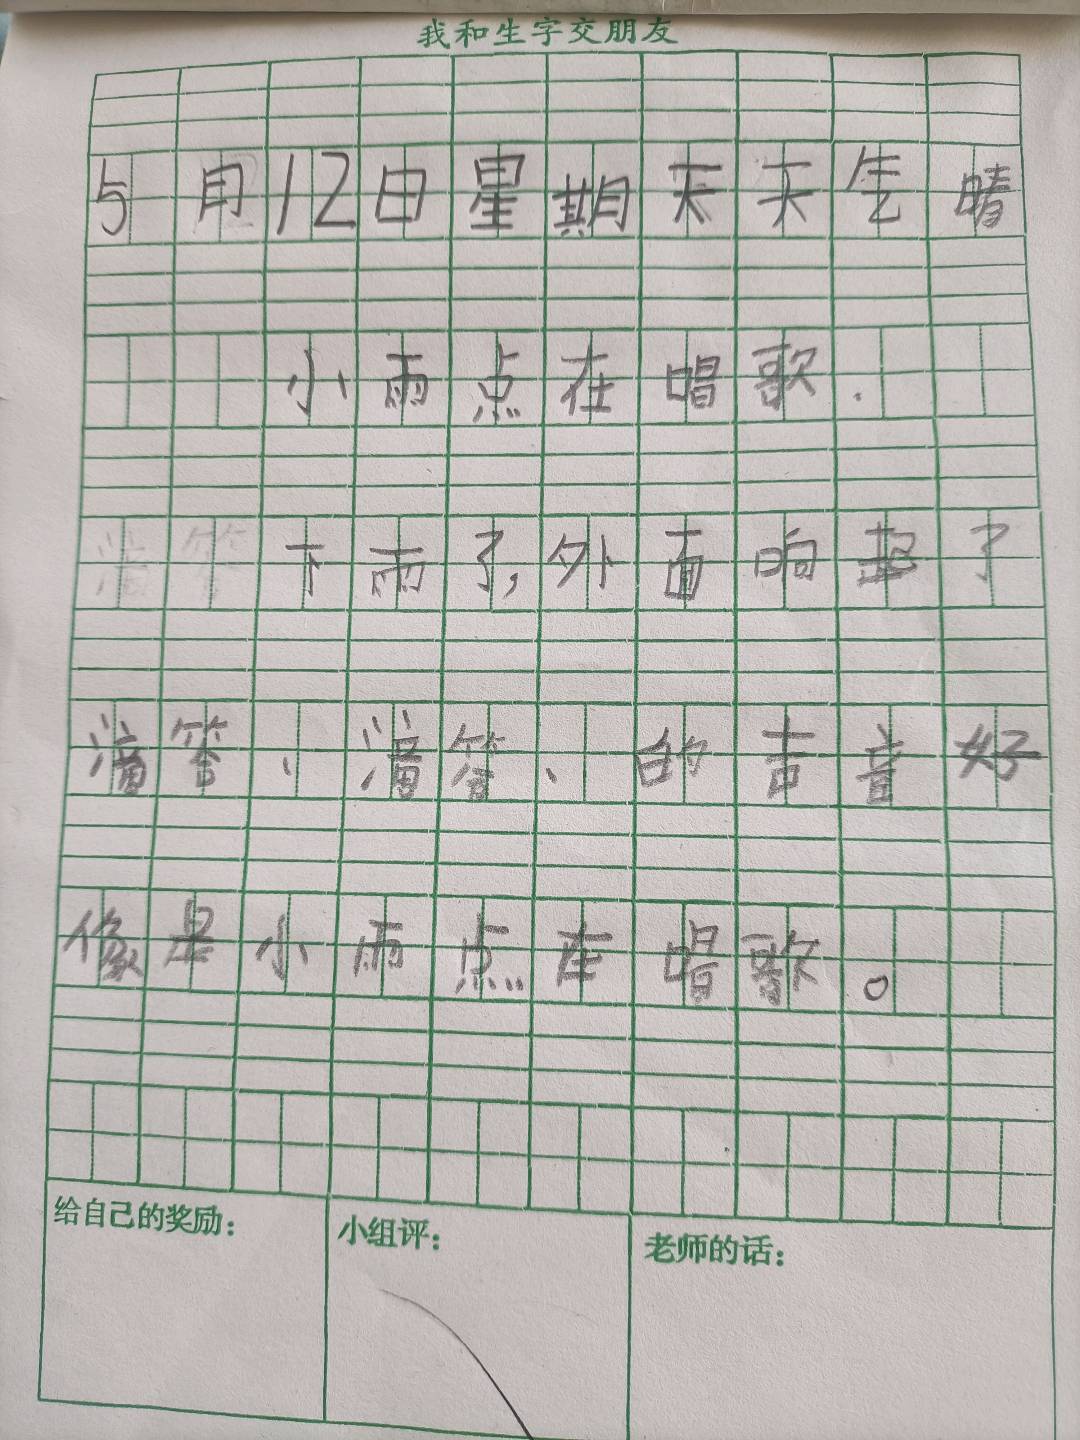 我和生字交朋友
5月12日星期天天气晴
小雨点在唱歌.
下雨了,外面响起了
滴答、滴答、的声音好
像是小雨点在唱歌。
给自己的奖励:
小组评:
老师的话: